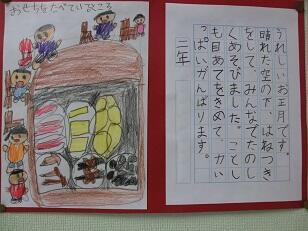 おせちをたべているところ
うれしいお正月です。
晴れた空の下、はねつき
をして、みんなでたのし
くあそびました。ことし
も目あてをきめて、力い
っぱいがんばります。
二年